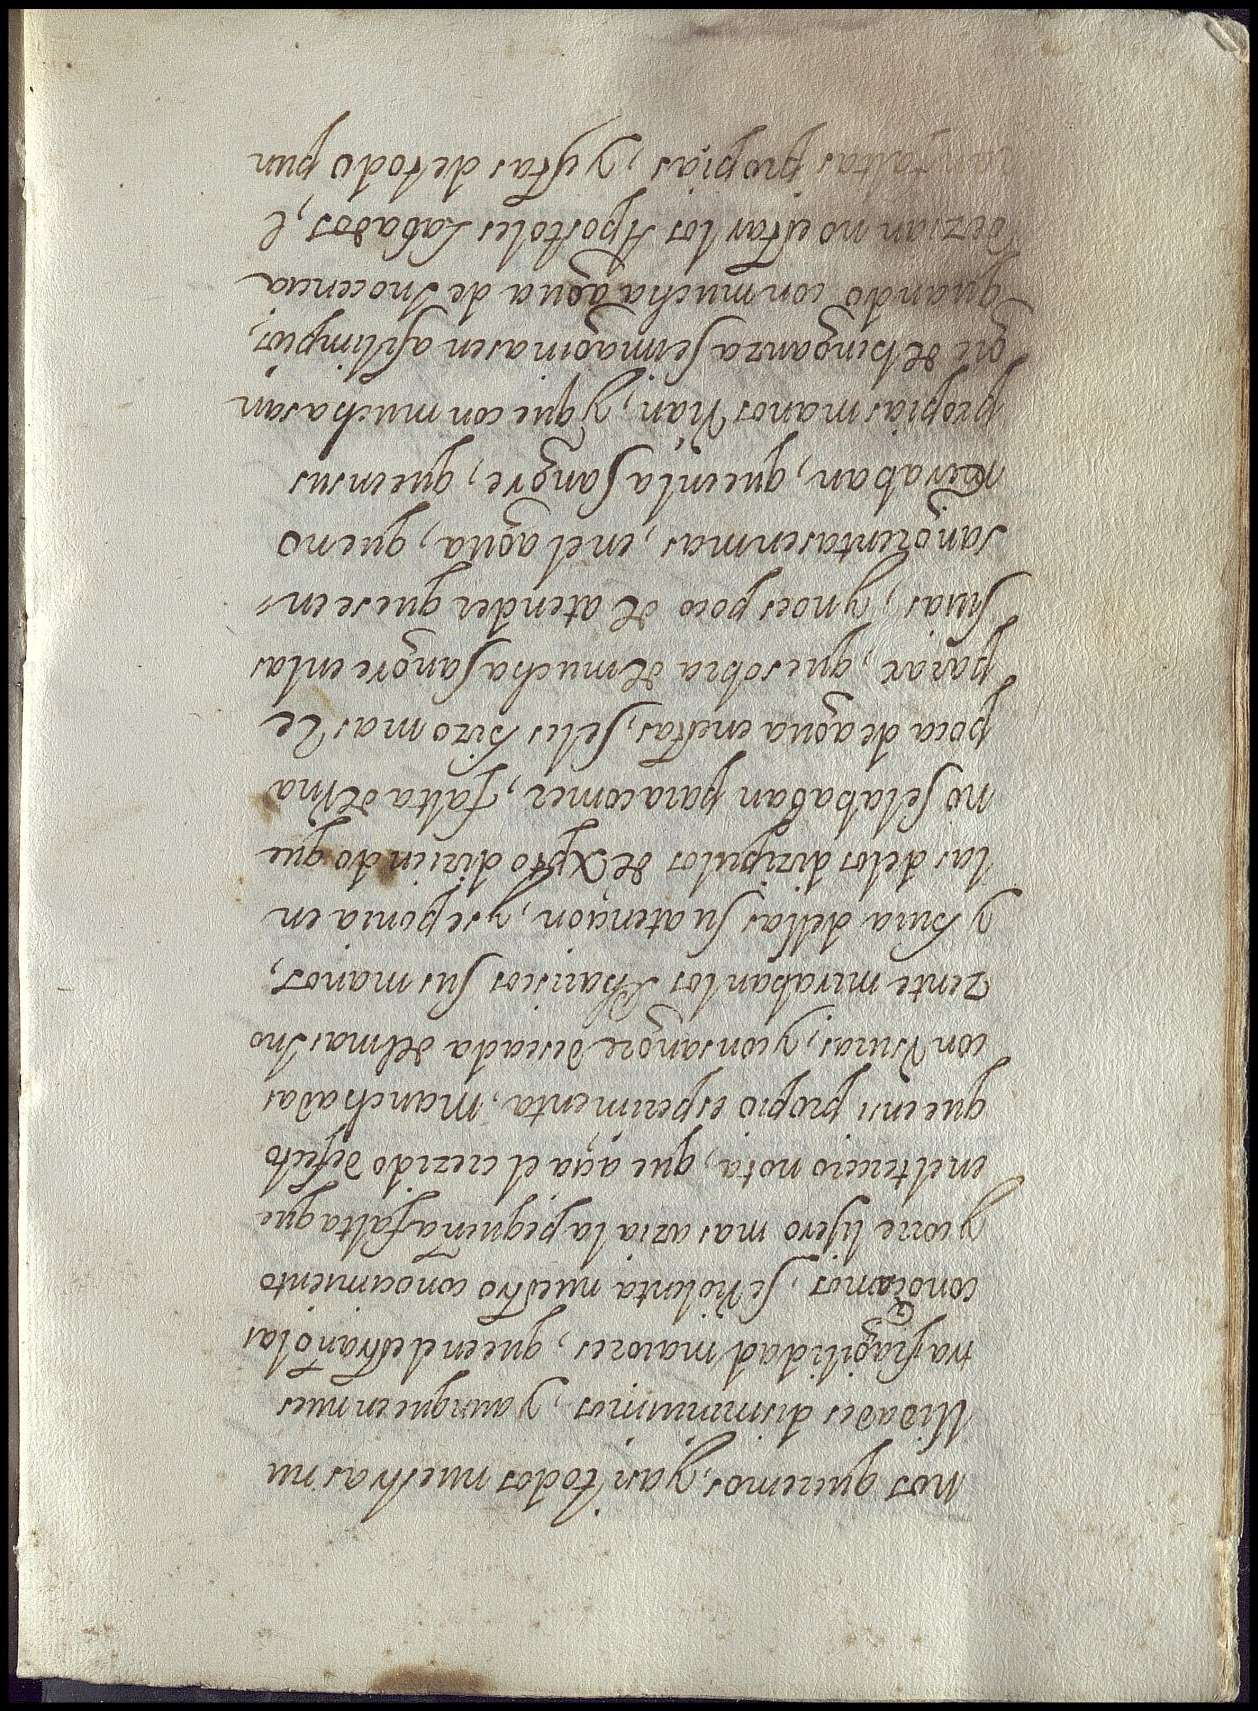 nos queremos, y asi todos nuestras nu
llidades disminuimos, y aunque en nues
tra fragilidad maiores, que en el estraño las
conozcamos, se violenta nuestro conocimiento
y corre lijero mas azia la pequeña falta que
en el tercero nota, que aqa el crezido defecto
que en si propio esperimenta. Manchadas
con Vsuras, y con sangre deseada del mas Ino
zente miraban los Phariseos sus manos,
y huia dellas su atençion, y se ponia en
las de los dizipulos de Xpto diziendo que
no se lababan para comer, falta de Vna
poca de agua en estas, se les hizo mas de
parar, que sobra de mucha sangre en las
suas, y no es poco de atender que se en=
sangrentasen mas, en el agua, que no
tiraban, que en la sangre, que en sus
propias manos vian, y que con mucha san
gre de benganza se imaginasen asi limpios,
quando con mucha agua de Inocencia
dezian no estar los Apostoles Labados, l
faltas propias, y estas de todo pun